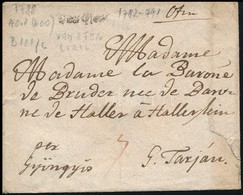 1782-791
Ofen
Madame
Madame la Barone
de Bruder nee de Baro
ne de Haller à Hallerstein
per
Gyöngyös
G. Tarján